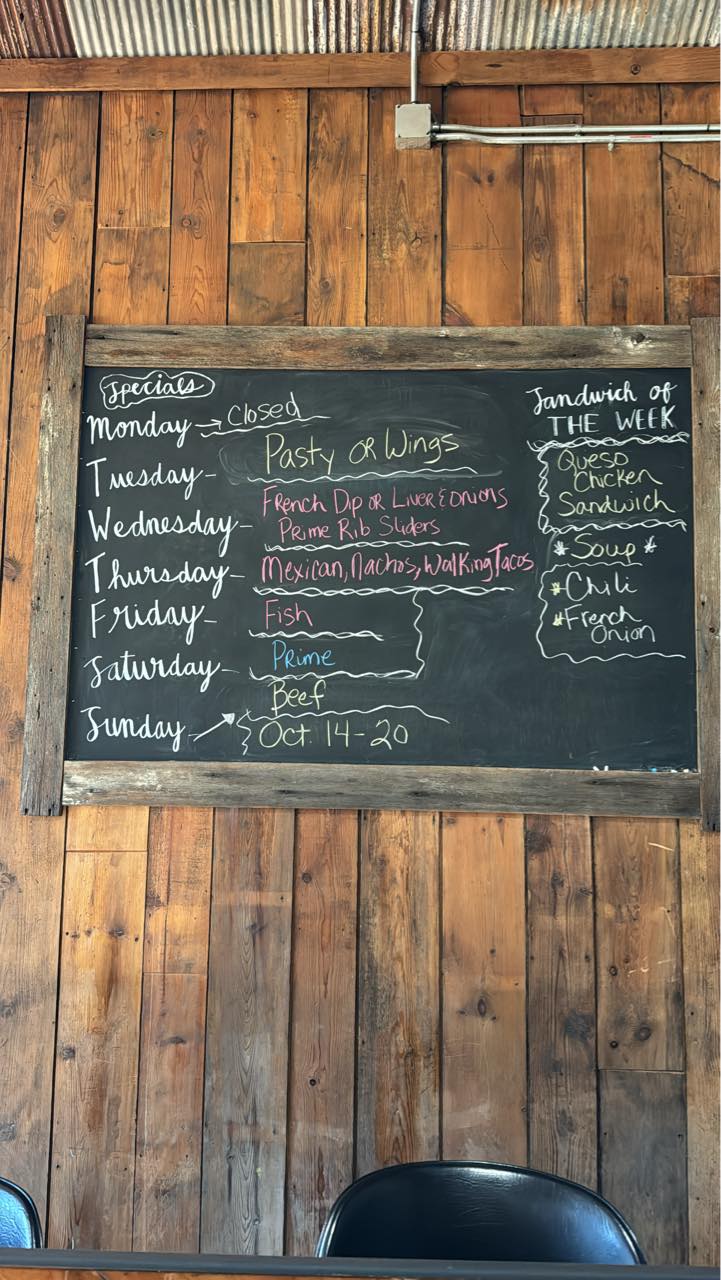 Specials
Monday → Closed
Tuesday - Pasty or Wings
Wednesday - French Dip or Liver & Onions
Prime Rib Sliders
Thursday - Mexican, Nachos, Walking Tacos
Friday - Fish
Saturday - Prime
Sunday → Beef
Oct. 14-20
Sandwich of
THE WEEK
Queso
Chicken
Sandwich
* Soup *
* Chili
* French
Onion